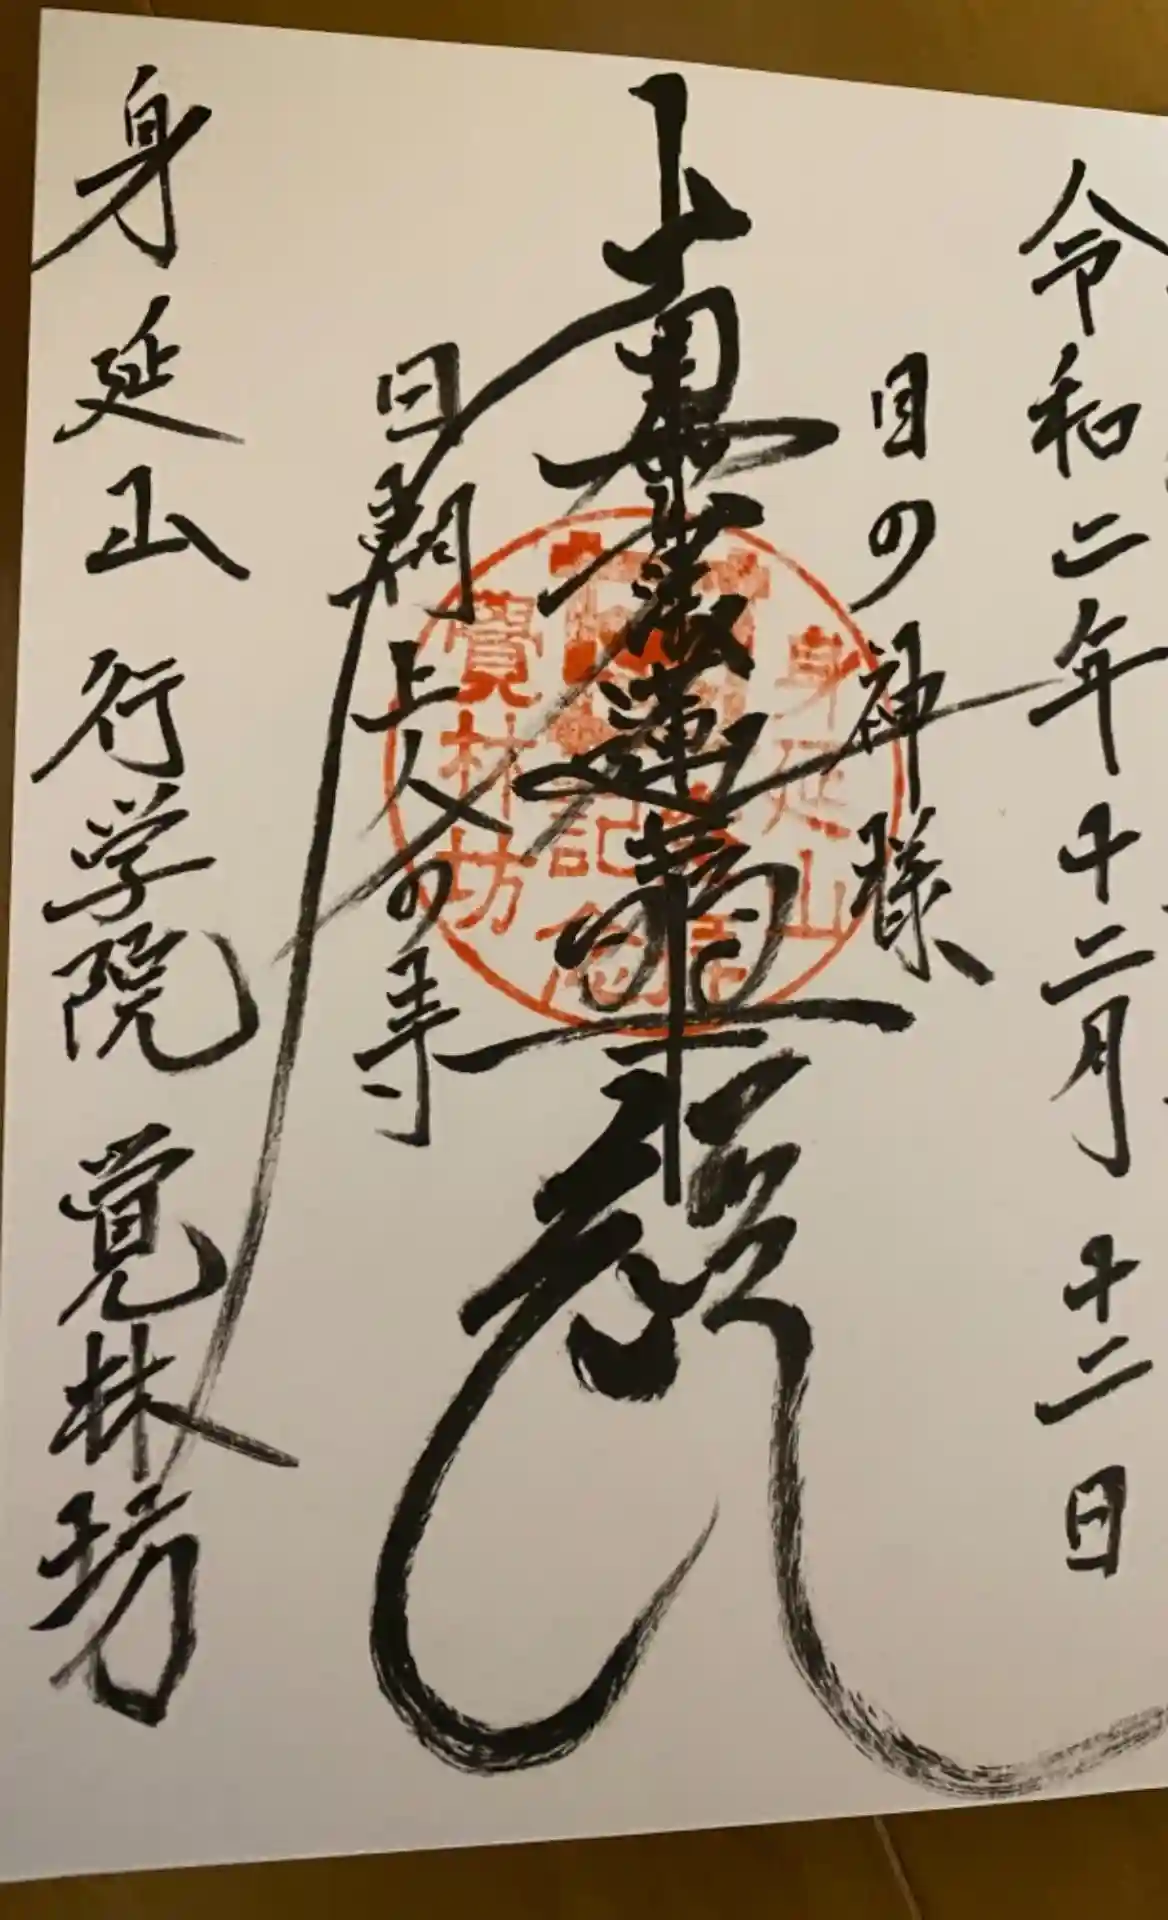 令和二年十二月十二日
目の神様
南無妙法蓮華経
日朝上人の寺
身延山 行学院 覚林坊
身延山
記念
覺林坊